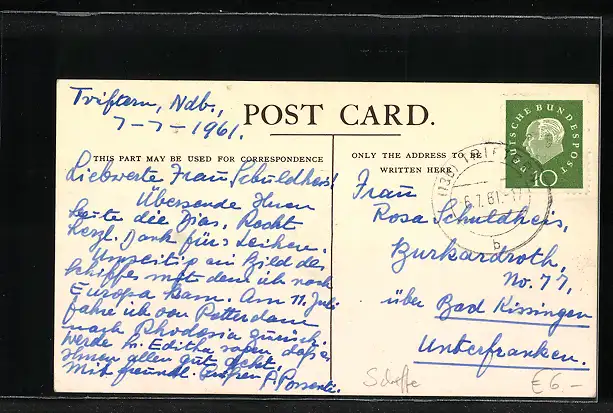 Triftern, Ndb.,
7-7-1961.
POST CARD.
THIS PART MAY BE USED FOR CORRESPONDENCE
ONLY THE ADDRESS TO BE
WRITTEN HERE
Liebwerte Frau Schuldheis!
Übersende Ihnen
heute die Dias. Recht
herzl. Dank für's Leihen.
Umseitig ein Bild des
Schiffes mit dem ich nach
Europa kam. Am 11. Juli
fahre ich von Rotterdam
nach Rhodesia zurück.
Werde Fr. Editha sagen, daß es
Ihnen allen gut geht.
Mit freundl. Grüßen P.
Frau
Rosa Schuldheis,
Burkardroth,
No. 77,
über Bad Kissingen
Unterfranken.
DEUTSCHE BUNDESPOST
10
.7.61.
b
Schiffe
€ 6.-